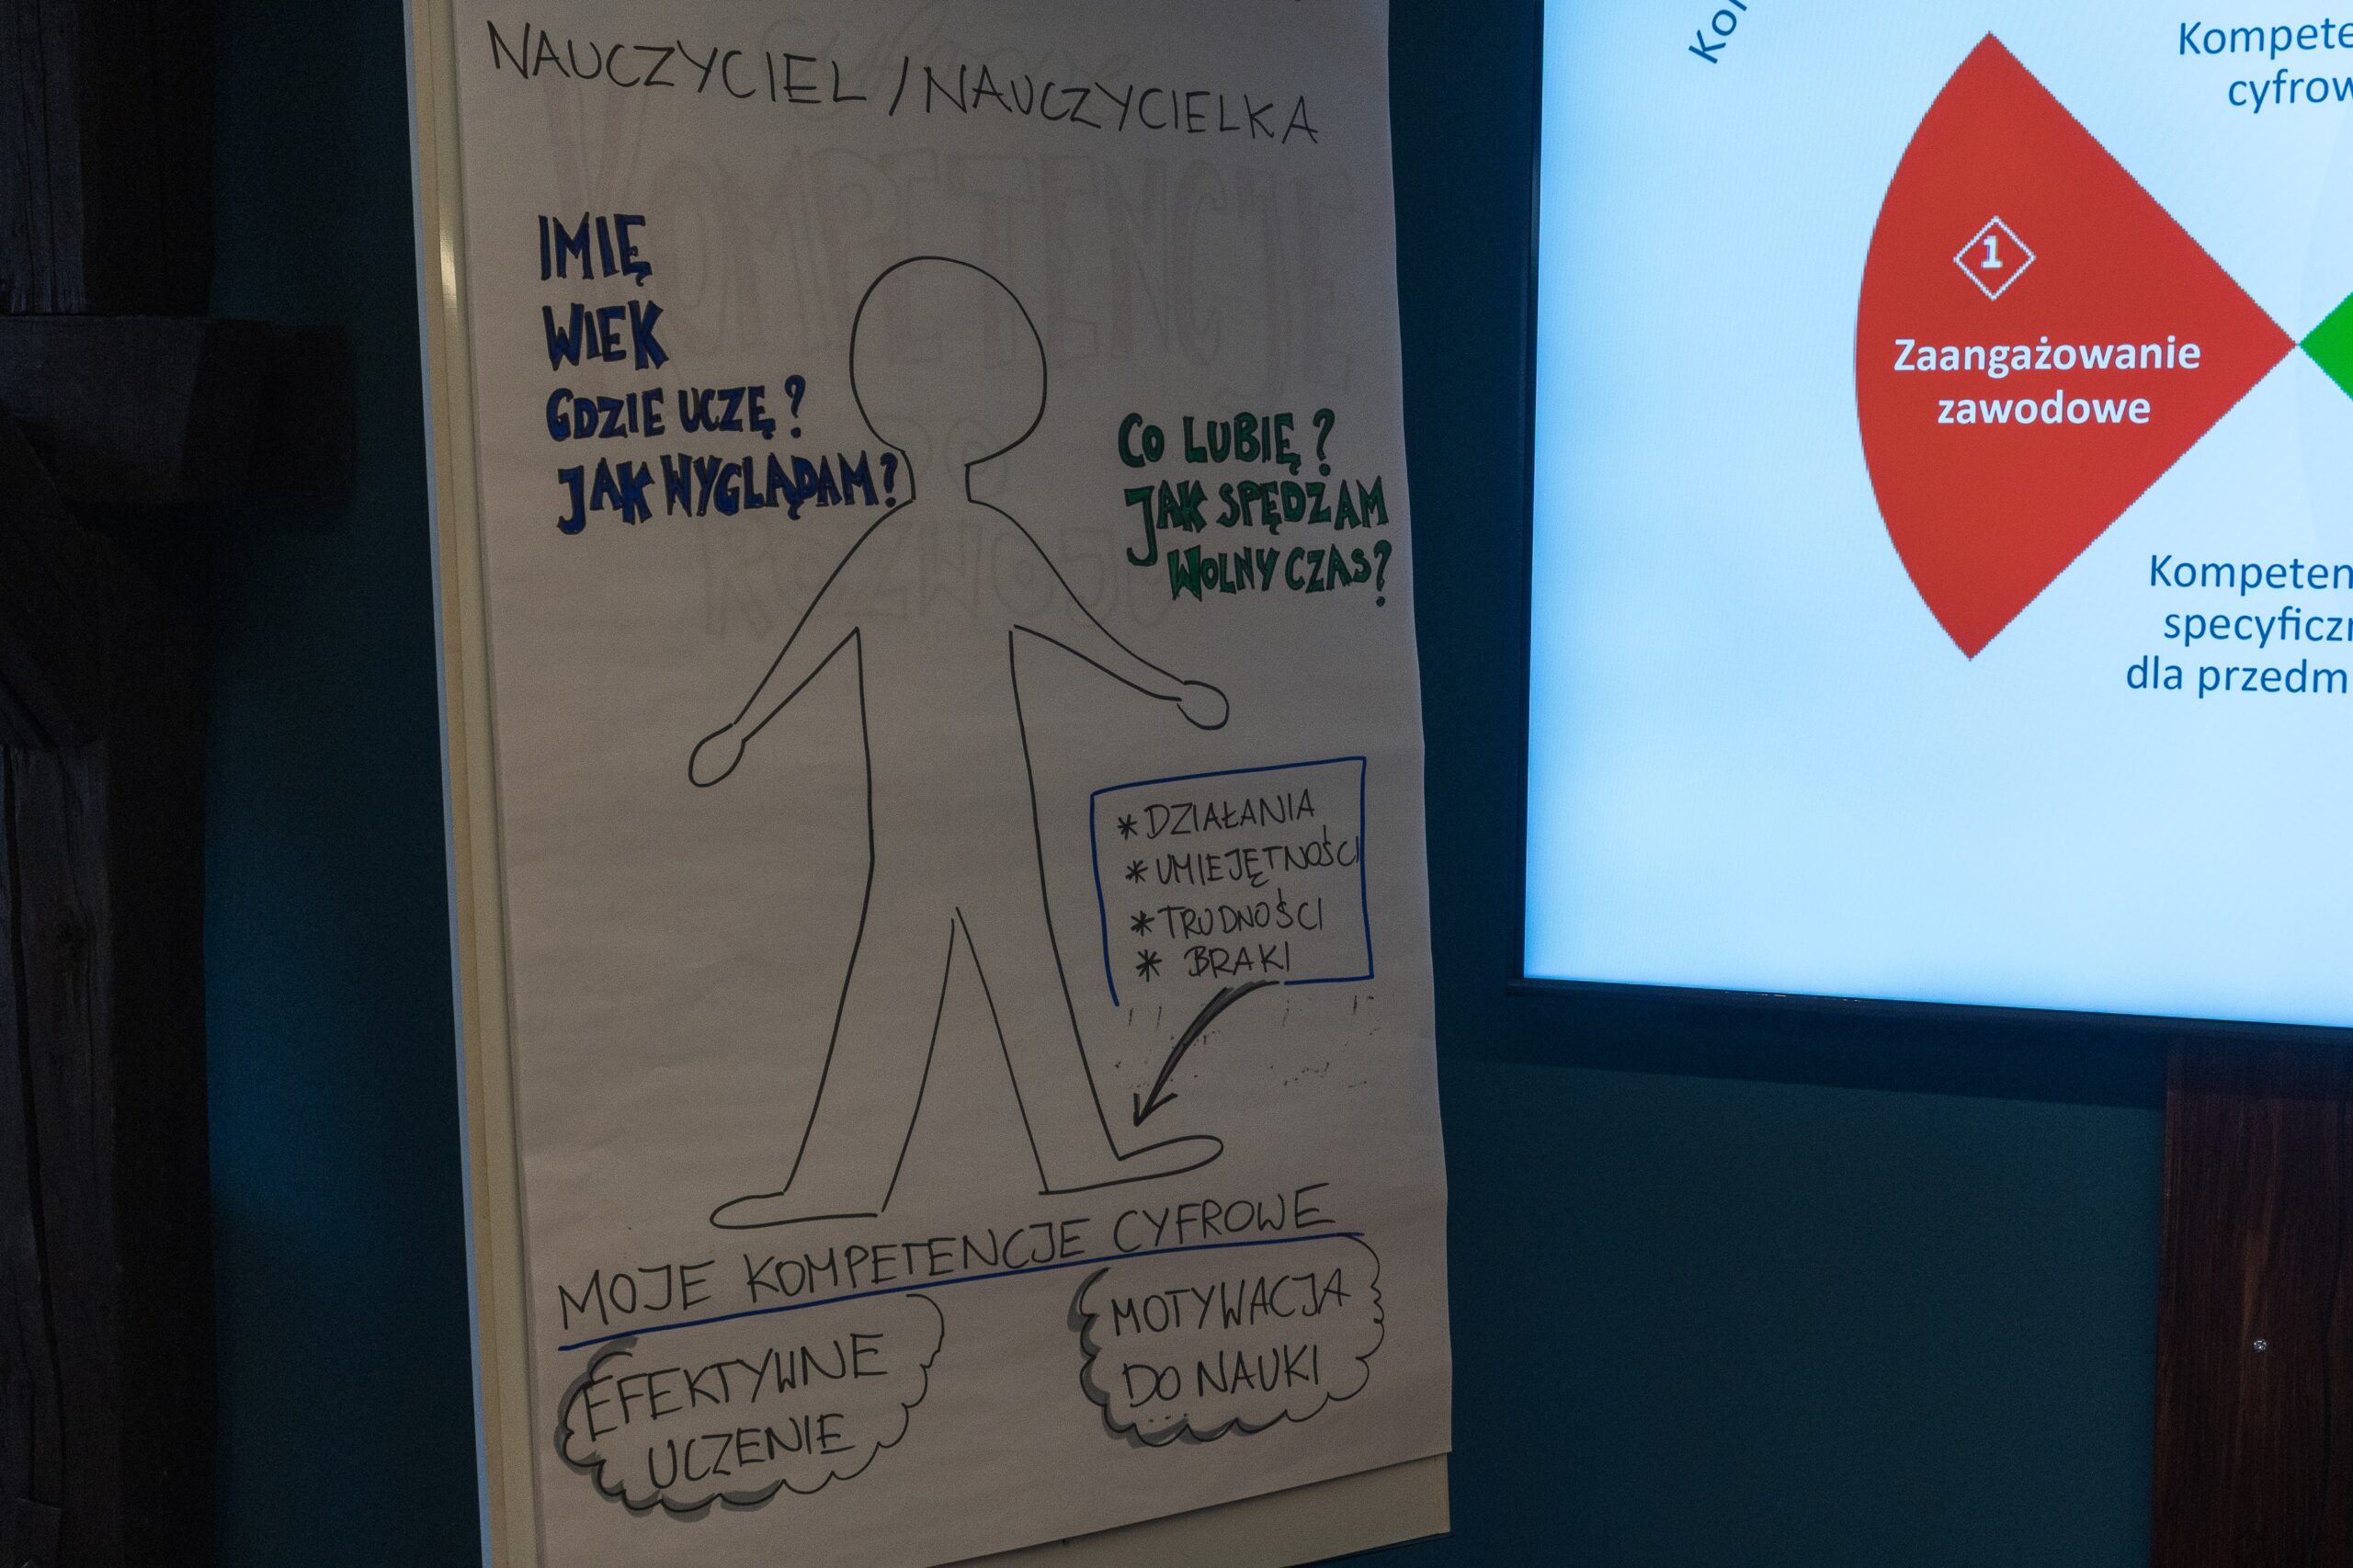 NAUCZYCIEL / NAUCZYCIELKA
IMIĘ
WIEK
GDZIE UCZĘ?
JAK WYGLĄDAM?
CO LUBIĘ?
JAK SPĘDZAM
WOLNY CZAS?
* DZIAŁANIA
* UMIEJĘTNOŚCI
* TRUDNOŚCI
* BRAKI
MOJE KOMPETENCJE CYFROWE
EFEKTYWNE
UCZENIE
MOTYWACJA
DO NAUKI
Kor
Kompete
cyfrow
1
Zaangażowanie
zawodowe
Kompeten
specyficzn
dla przedm